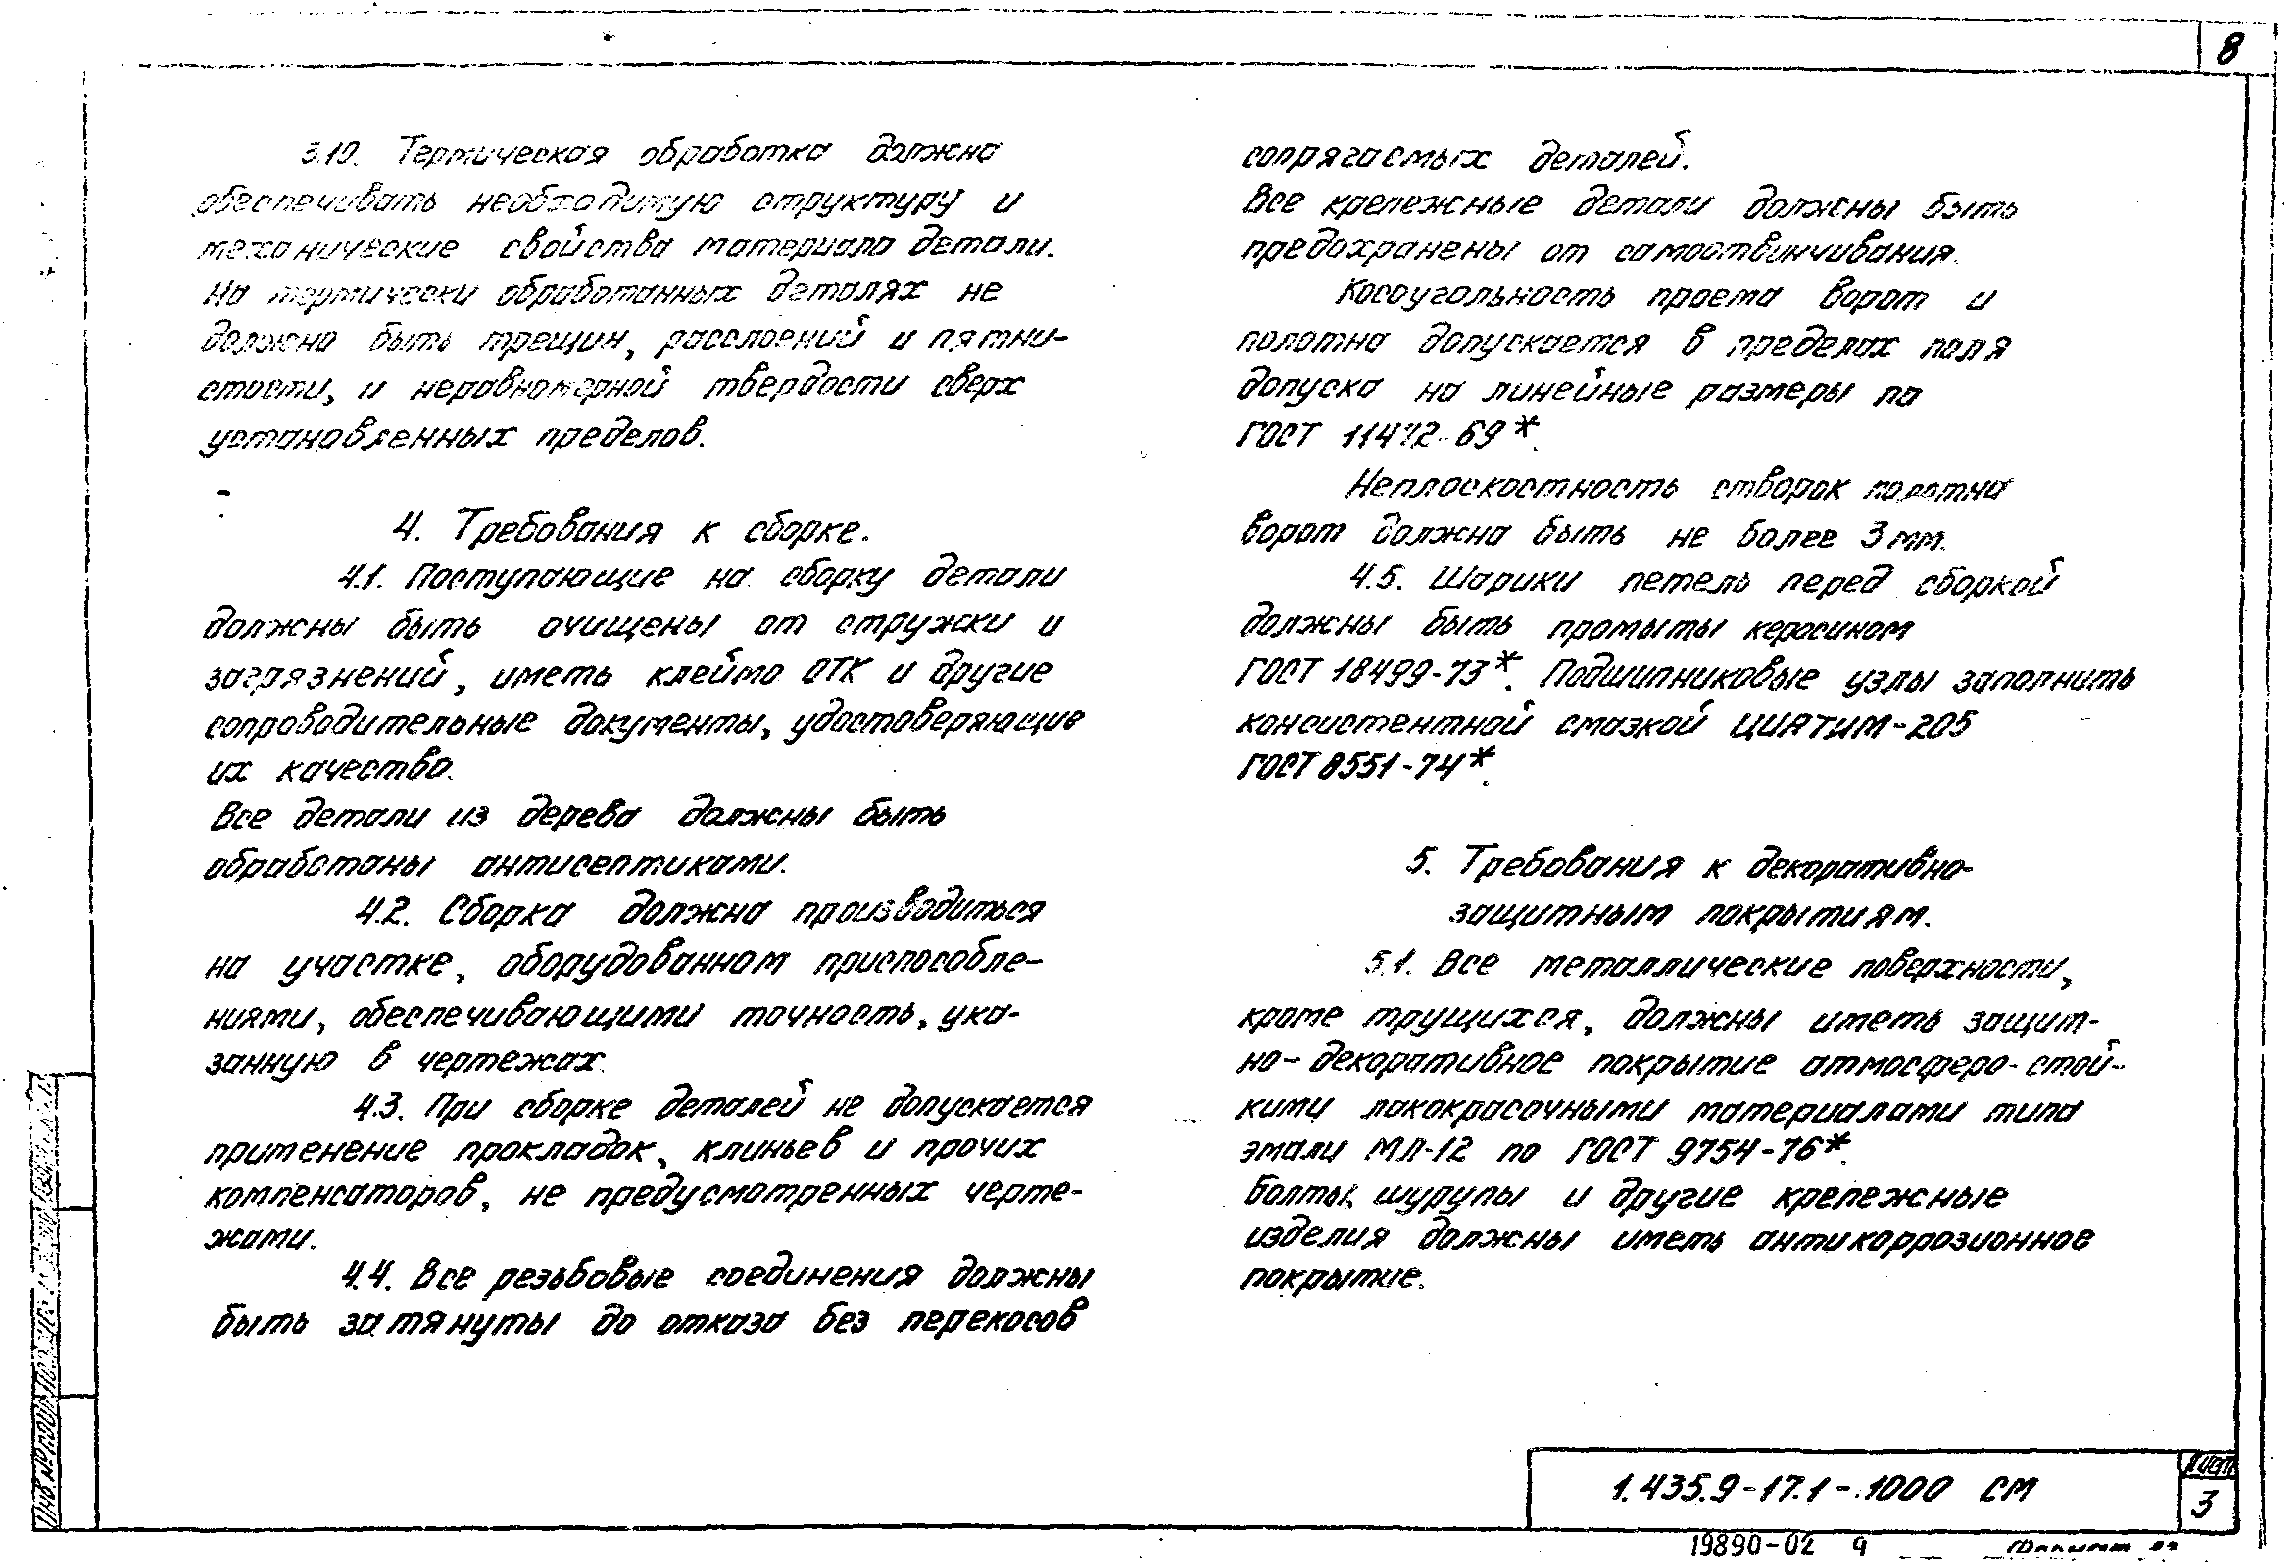 8
3.10. Термическая обработка должна
обеспечивать необходимую структуру и
механические свойства материала детали.
На термически обработанных деталях не
должно быть трещин, расслоений и пятни-
стости, и неравномерной твердости сверх
установленных пределов.
4. Требования к сборке.
4.1. Поступающие на сборку детали
должны быть очищены от стружки и
загрязнений, иметь клеймо ОТК и другие
сопроводительные документы, удостоверяющие
их качество.
Все детали из дерева должны быть
обработаны антисептиками.
4.2. Сборка должна производиться
на участке, оборудованном приспособле-
ниями, обеспечивающими точность, ука-
занную в чертежах.
4.3. При сборке деталей не допускается
применение прокладок, клиньев и прочих
компенсаторов, не предусмотренных черте-
жами.
4.4. Все резьбовые соединения должны
быть затянуты до отказа без перекосов
сопрягаемых деталей.
Все крепежные детали должны быть
предохранены от самоотвинчивания.
Косоугольность проема ворот и
полотна допускается в пределах поля
допуска на линейные размеры по
ГОСТ 11472-69*.
Неплоскостность створок полотна
ворот должна быть не более 3 мм.
4.5. Шарики петель перед сборкой
должны быть промыты керосином
ГОСТ 18499-73*. Подшипниковые узлы заполнить
консистентной смазкой ЦИАТИМ-205
ГОСТ 8551-74*.
5. Требования к декоративно-
защитным покрытиям.
5.1. Все металлические поверхности,
кроме трущихся, должны иметь защит-
но-декоративное покрытие атмосферо-стой-
кими лакокрасочными материалами типа
эмали МЛ-12 по ГОСТ 9754-76*.
Болты, шурупы и другие крепежные
изделия должны иметь антикоррозионное
покрытие.
1.435.9-17.1-.1000 СМ
Лист
3
19890-02 9
Формат